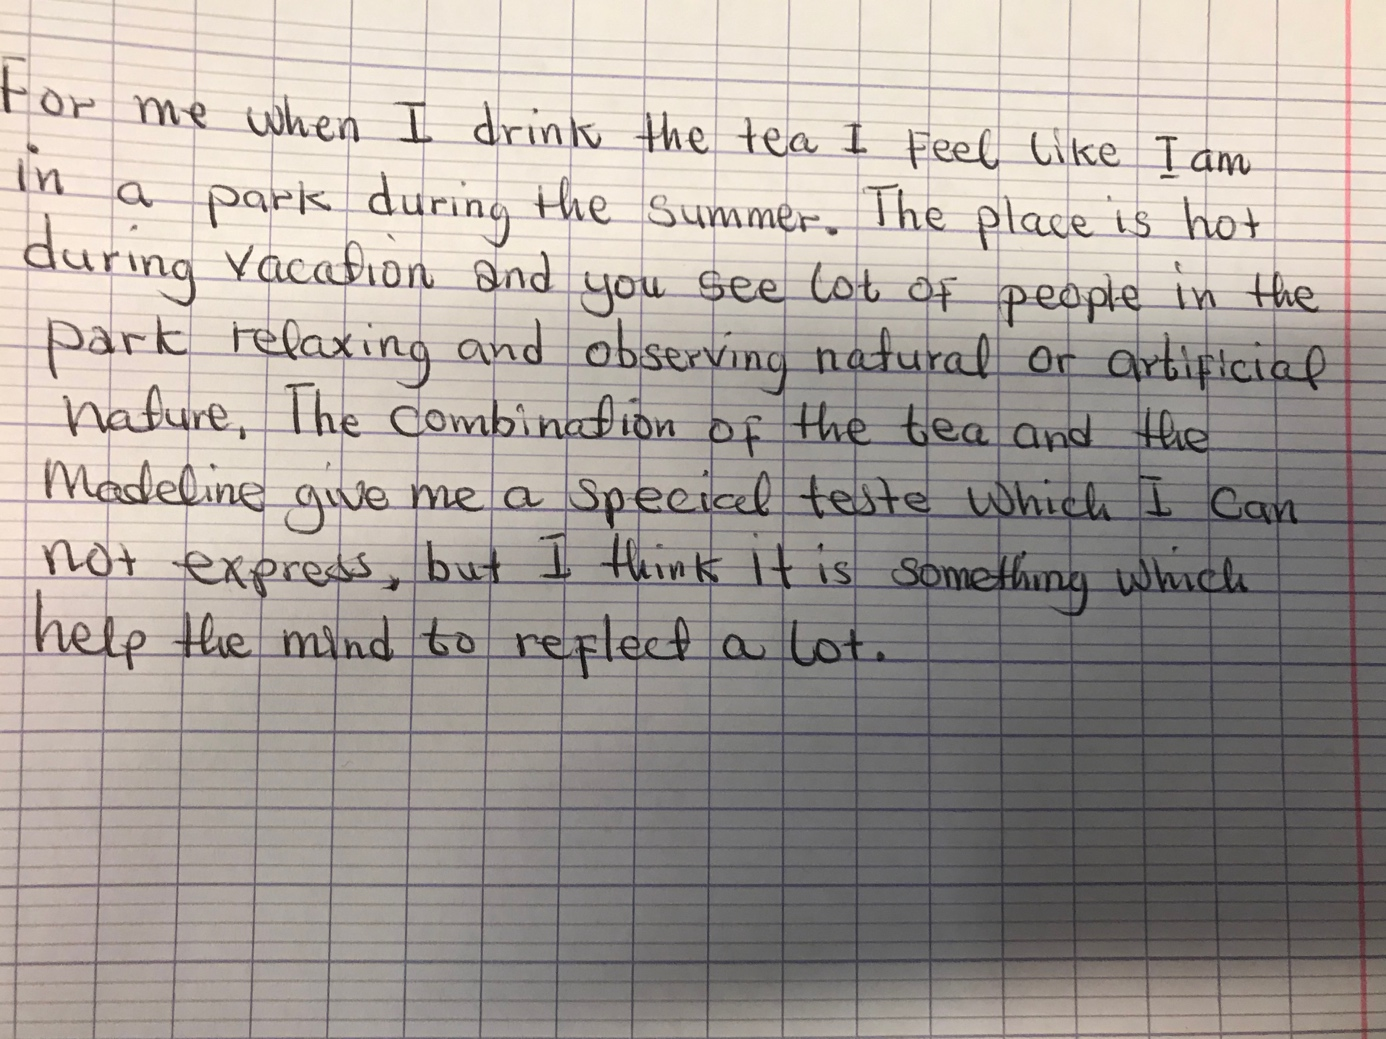 For me when I drink the tea I Feel like I am
in a park during the summer. The place is hot
during vacation and you see lot of people in the
park relaxing and observing natural or artificial
nature. The combination of the tea and the
Madeline give me a specical teste which I can
not express, but I think it is something which
help the mind to reflect a lot.